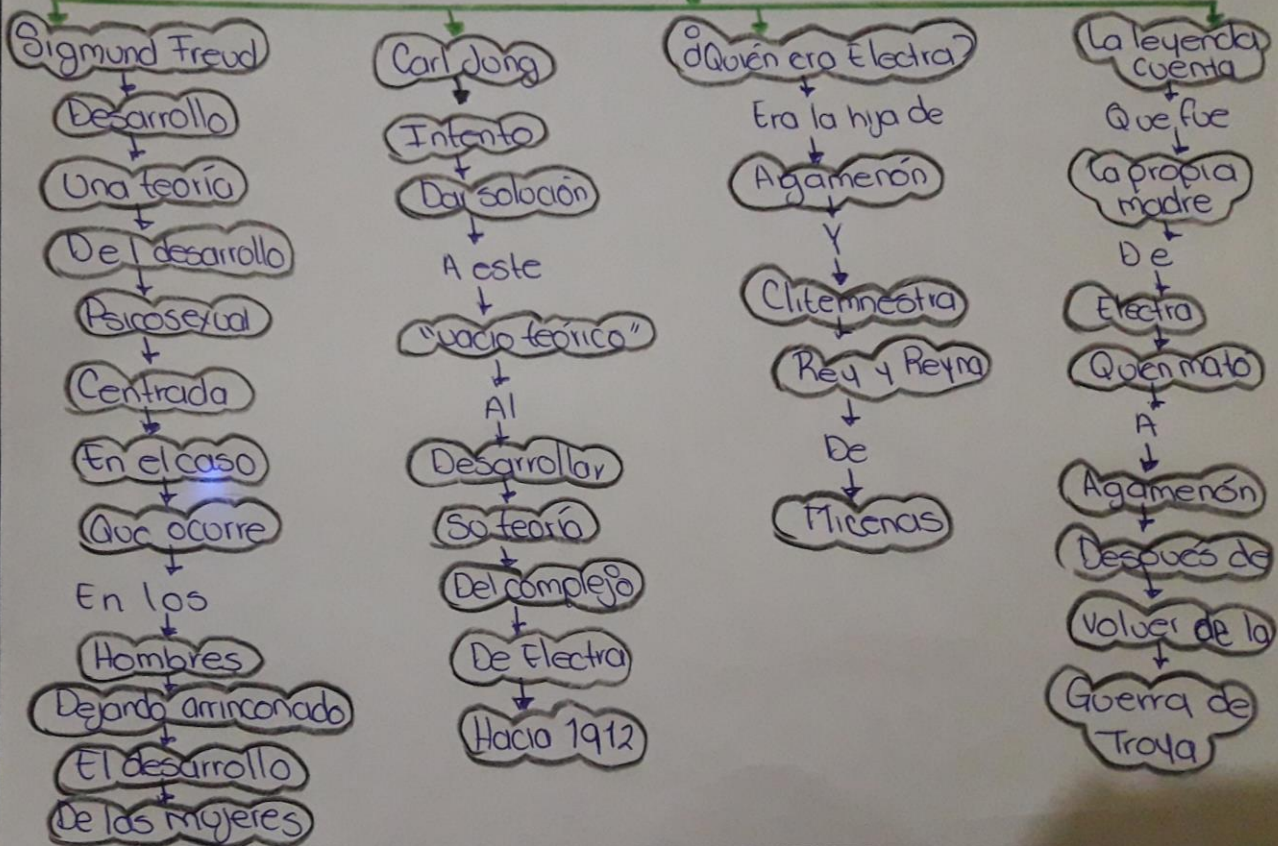 Sigmund Freud
Desarrollo
Una teoría
Del desarrollo
Psicosexual
Centrada
En el caso
Que ocurre
En los
Hombres
Dejando arrinconado
El desarrollo
De las mujeres
Carl Jung
Intento
Dar solución
A este
"vacio teórico"
Al
Desarrollar
Su teoría
Del complejo
De Electra
Hacia 1912
¿Quién era Electra?
Era la hija de
Agamenón
Y
Clitemnestra
Rey y Reyna
De
Micenas
La leyenda
cuenta
Que fue
La propia
madre
De
Electra
Quien mató
A
Agamenón
Después de
volver de la
Guerra de
Troya